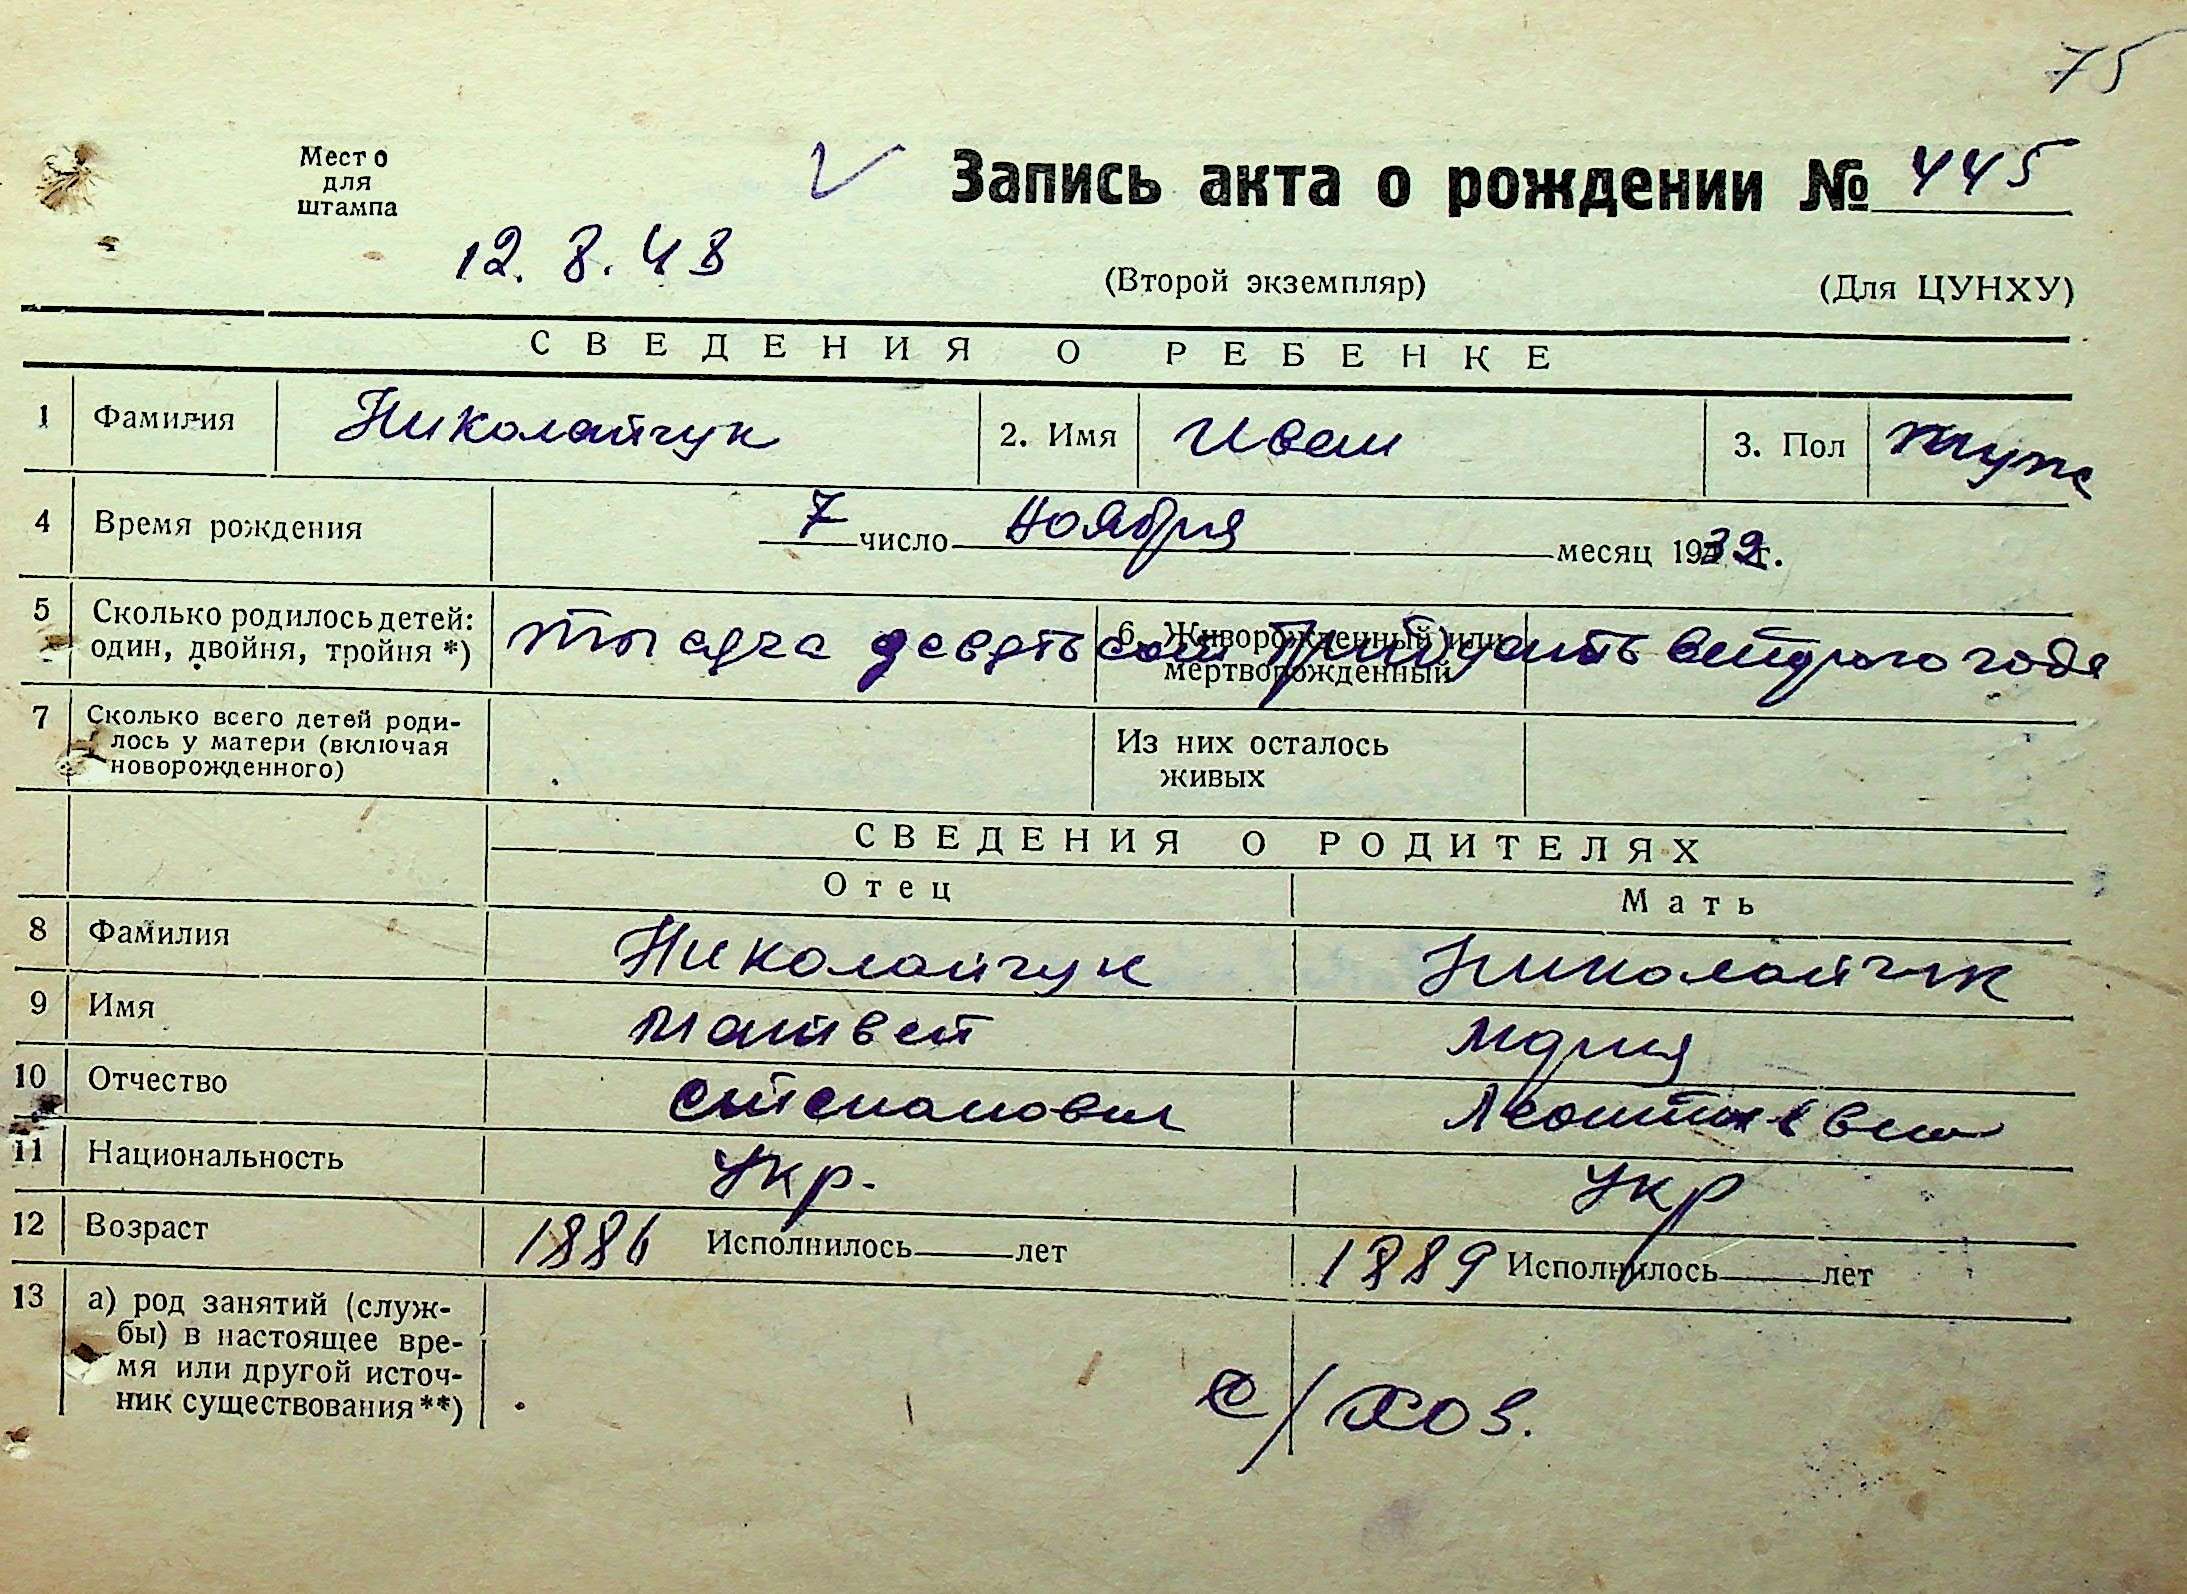 75
Место
для
штампа
Запись акта о рождении № 445
12. 8. 48
(Второй экземпляр) (Для ЦУНХУ)
СВЕДЕНИЯ О РЕБЕНКЕ
1 Фамилия Николайчук 2. Имя Иван 3. Пол муж
4 Время рождения 7 число ноября месяц 1932 г.
5 Сколько родилось детей: один, двойня, тройня *) 6. Живорожденный или мертворожденный
тысяча девятьсот тридцать второго года
7 Сколько всего детей роди-
лось у матери (включая
новорожденного)
Из них осталось
живых
СВЕДЕНИЯ О РОДИТЕЛЯХ
Отец Мать
8 Фамилия Николайчук Николайчук
9 Имя Матвей Мария
10 Отчество Степанович
11 Национальность Укр. Укр
12 Возраст 1886 Исполнилось лет 1889 Исполнилось лет
13 а) род занятий (служ-
бы) в настоящее вре-
мя или другой источ-
ник существования **)
с/хоз.